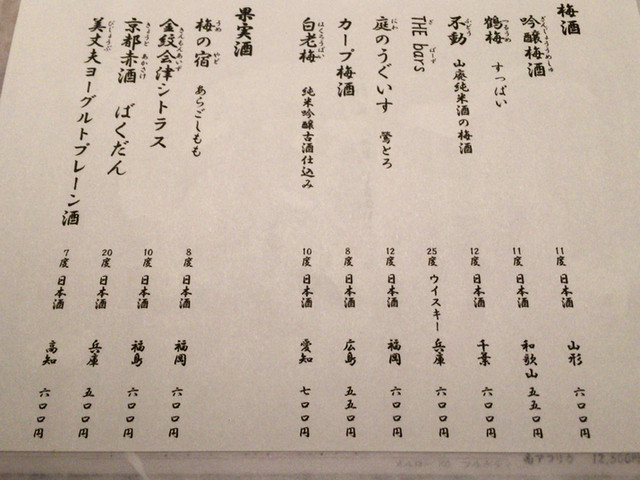 梅酒
ぎんじょううめしゅ
吟醸梅酒 11度 日本酒 山形 六〇〇円
つるうめ
鶴梅 すっぱい 11度 日本酒 和歌山 五五〇円
ふどう
不動 山廃純米酒の梅酒 12度 日本酒 千葉 六〇〇円
ざ ばーず
THE bars 25度 ウイスキー 兵庫 六〇〇円
にわ
庭のうぐいす 鶯とろ 12度 日本酒 福岡 六〇〇円
カープ梅酒 8度 日本酒 広島 五五〇円
はくろうばい
白老梅 純米吟醸古酒仕込み 10度 日本酒 愛知 七〇〇円
果実酒
うめ やど
梅の宿 あらごしもも 8度 日本酒 福岡 六〇〇円
きんもんあいづ
金紋会津シトラス 10度 日本酒 福島 六〇〇円
きょうと あかさけ
京都赤酒 ばくだん 20度 日本酒 兵庫 五五〇円
びじょうふ
美丈夫ヨーグルトプレーン酒 7度 日本酒 高知 六〇〇円
南アフリカ 12,500円